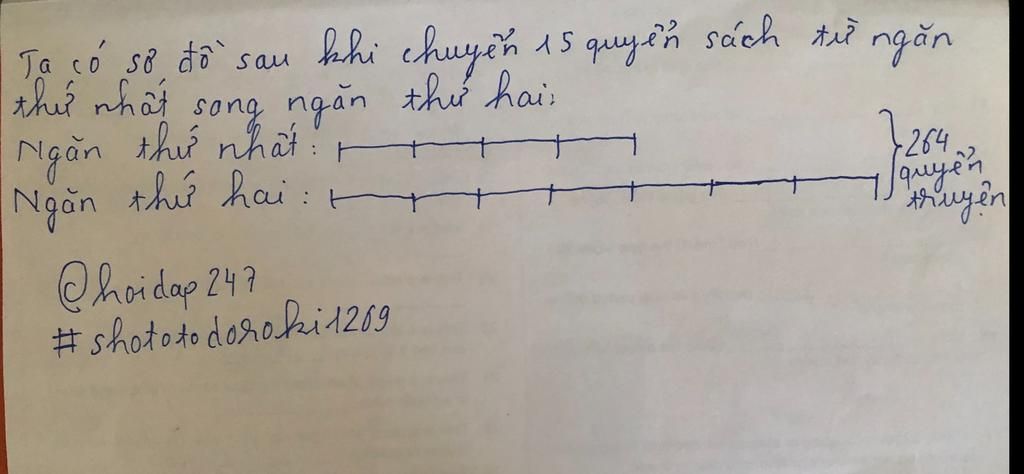 Ta có sơ đồ sau khi chuyển 15 quyển sách từ ngăn
thứ nhất song ngăn thứ hai:
Ngăn thứ nhất:
Ngăn thứ hai:
264
quyển
truyện
@hoidap247
#shototodoroki1269